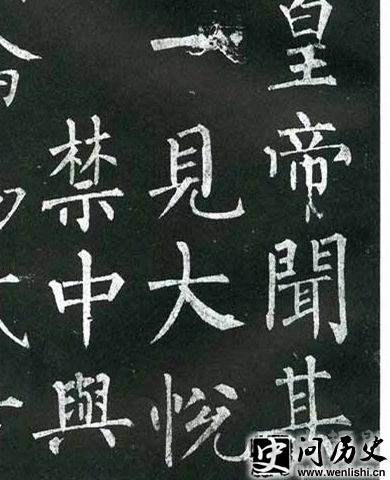 皇帝聞其
一見大悅
禁中與
史问历史
www.wenlishi.cn